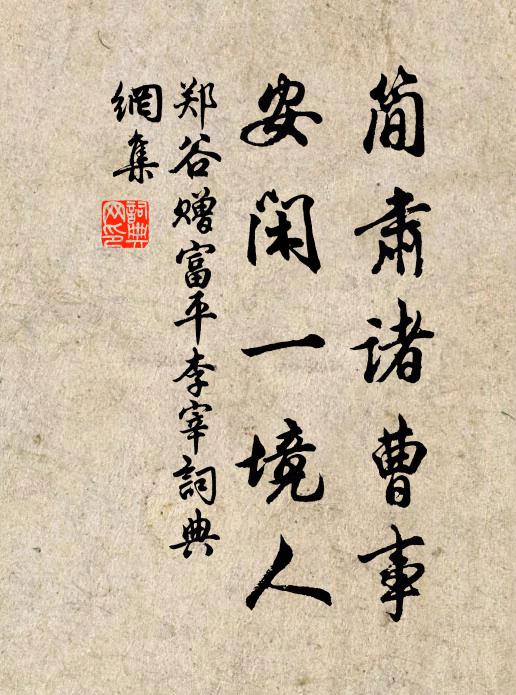 简肃诸曹事
安闲一境人
郑谷赠富平李宰詞典
網集
詞典
网印